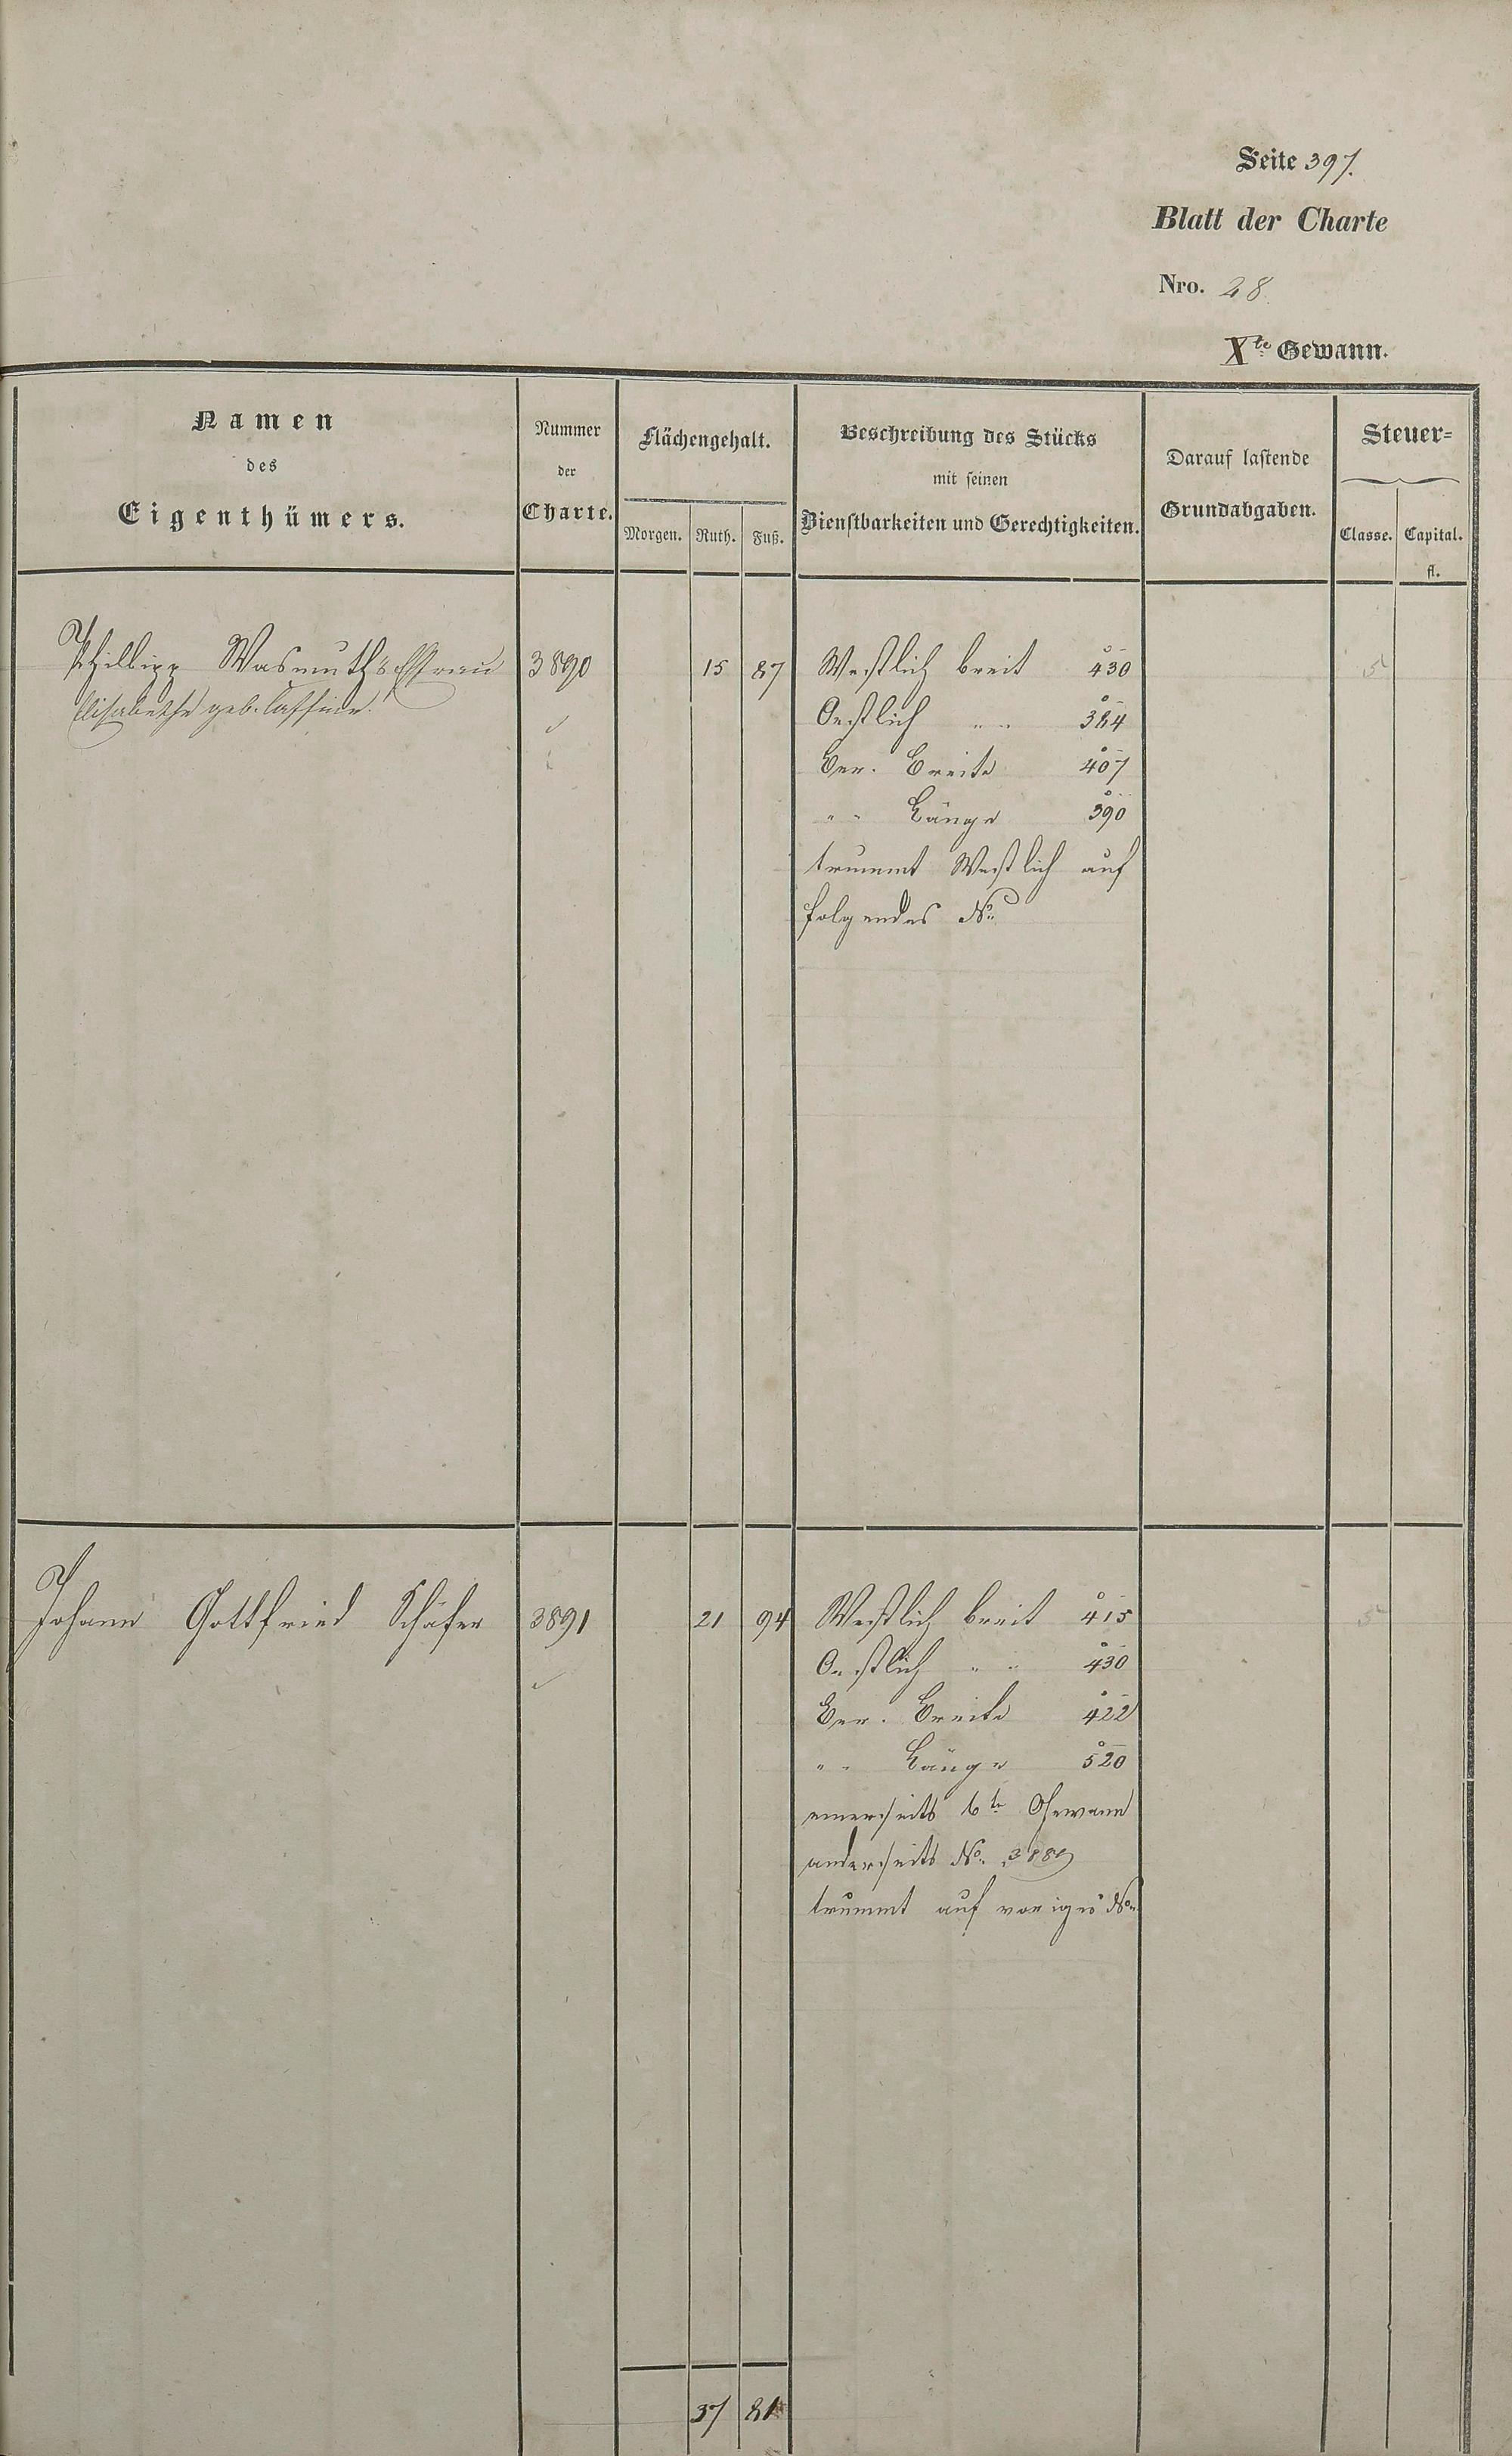 Seite 397.
Blatt der Charte
Nro. 28
Xte Gewann.
Namen
des
Eigenthümers.
Nummer
der
Charte.
Flächengehalt.
Morgen. Ruth. Fuß.
Beschreibung des Stücks
mit seinen
Dienstbarkeiten und Gerechtigkeiten.
Darauf lastende
Grundabgaben.
Steuer=
Classe. Capital.
fl.
Phillipp Wasmuths Ehfrau 3890 15 87 Westlich breit 430 5
Elisabethe geb.
Oestlich " " 384
Ver. Breite 407
" " Länge 390
trummt Westlich auf
folgendes No
Johann Gottfried Schäfer 3891 21 94 Westlich breit 415 5
Oestlich " " 430
Ver. Breite 422
" " Länge 520
einerseits 6te Gewann
anderseits No. 3889
trummt auf voriges No.
37 81